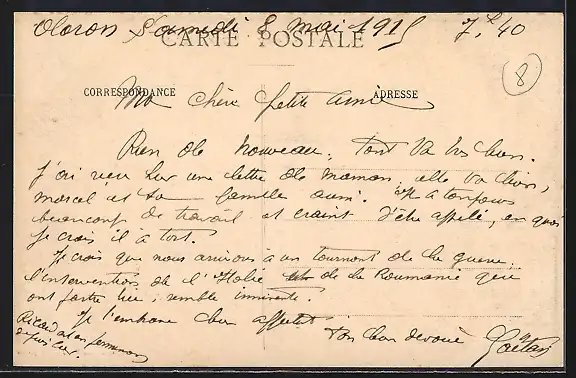 Oloron Samedi 8 mai 1915 7h 40
CARTE POSTALE
8
CORRESPONDANCE
ADRESSE
Ma chère petite amie
Rien de nouveau, tout va très bien.
J'ai reçu hier une lettre de maman, elle va bien,
Marcel et sa famille aussi. Il a toujours
beaucoup de travail et craint d'être appelé, en quoi
je crois il a tort.
Je crois que nous arrivons à un tournant de la guerre.
l'intervention de l'Italie et de la Roumanie qui
ont partie liée, semble imminente.
Je t'embrasse bien affectt
Ton bien dévoué Gaëtan
Ricard est en permission
depuis hier.